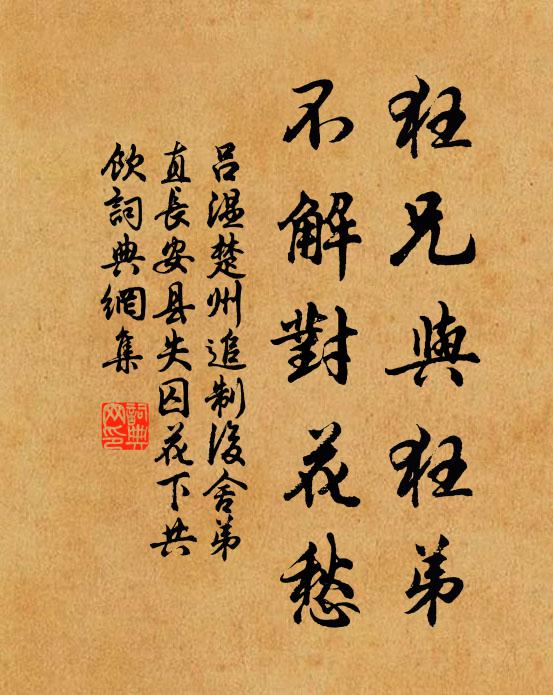 狂兄與狂弟
不解對花愁
呂溫楚州追制後舍弟
直長安县失囚花下共
飲詞典網集
詞典
网印